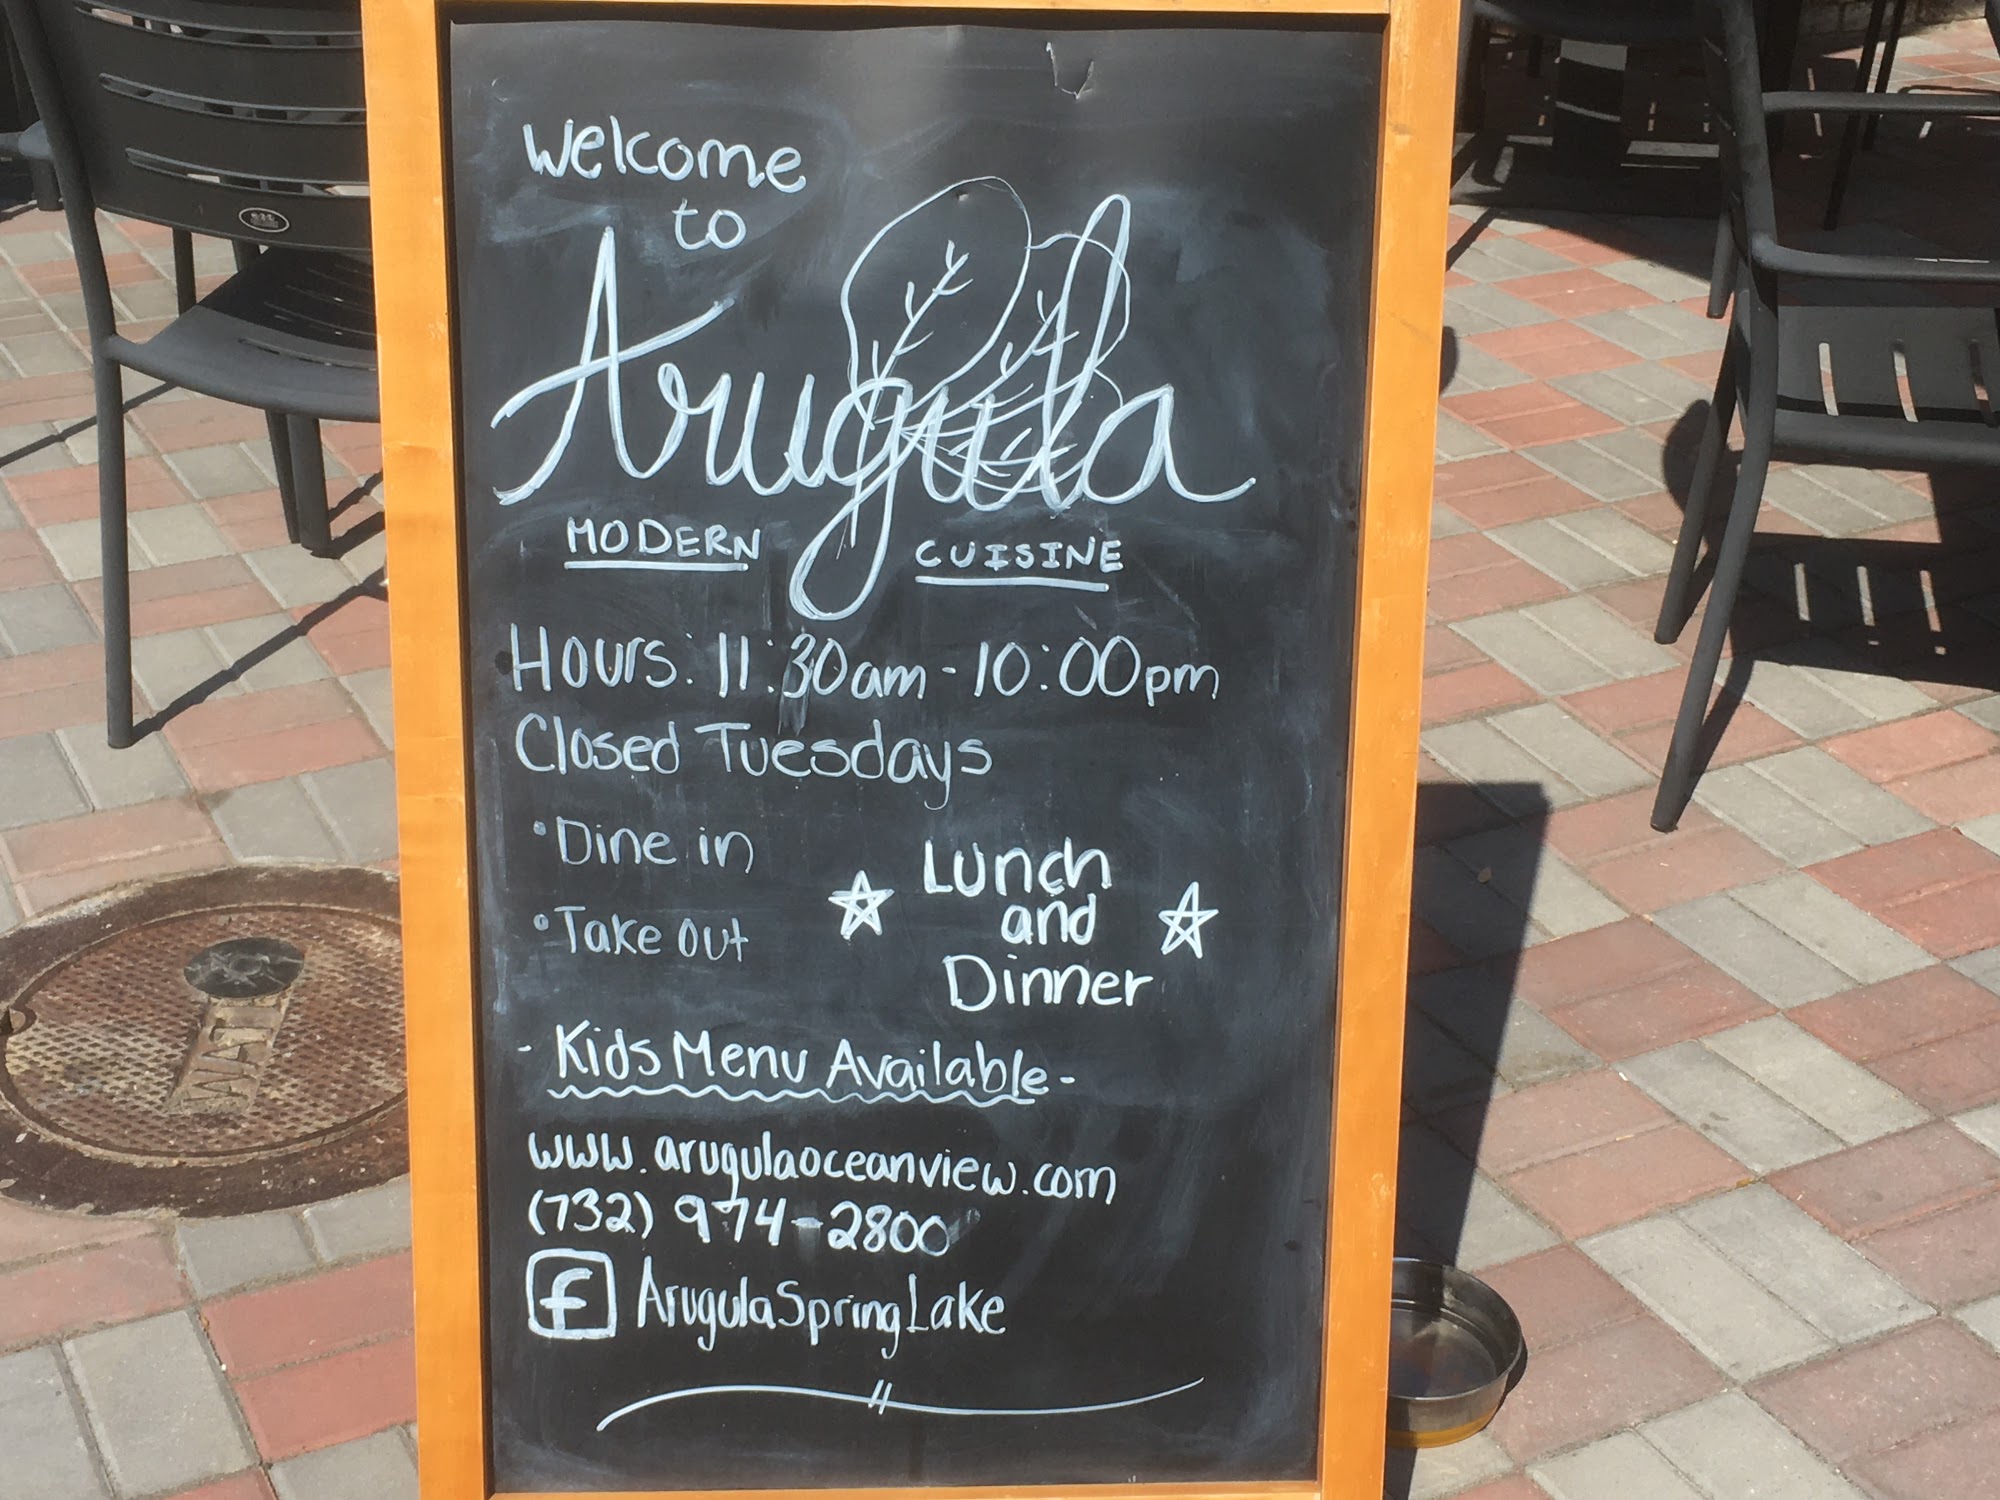 Welcome
to
Arugula
MODERN CUISINE
Hours: 11:30am - 10:00pm
Closed Tuesdays
• Dine in
• Take out
Lunch
and
Dinner
- Kids Menu Available -
www.arugulaoceanview.com
(732) 974-2800
f ArugulaSpringLake
WATER